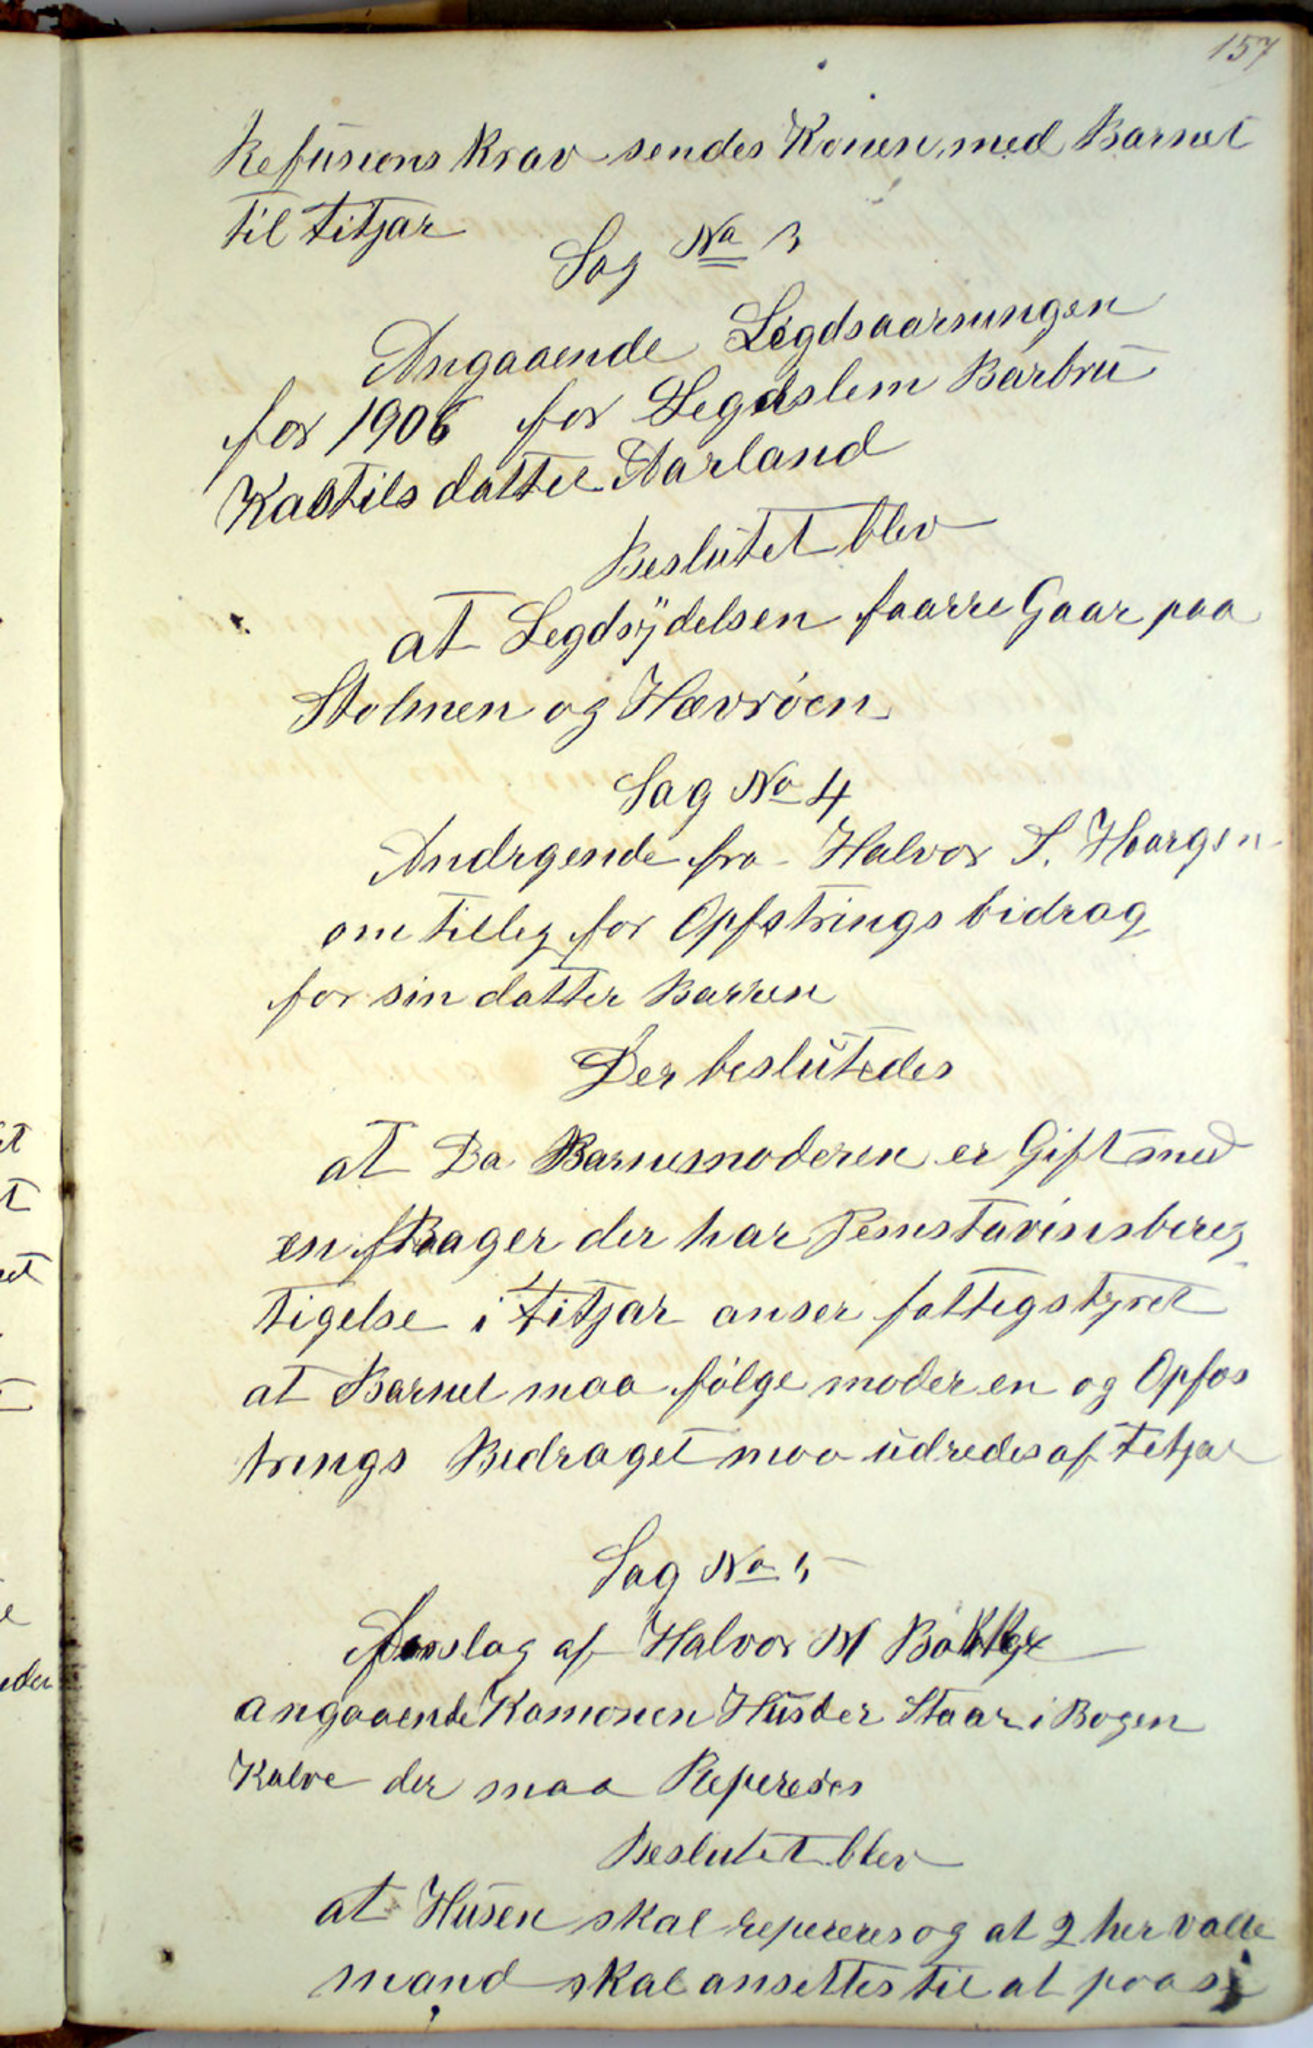 157
Refusions Krav sendes Konen med Barnet
til Fitjar
Sag No 3
Angaaende Legdsaarningen
for 1906 for Legdslem Barbru
Kastilsdatter Aarland
Beslutet blev
at Legdsydelsen faarre Gaar paa
Stolmen og Hævrøen
Sag No 4
Andrgende fra Halvor S. Horgen
om tilleg for Opfstrings bidrag
for sin datter Barren
Der beslutedes
at Da Barnemoderen er Gift med
en Bager der har Hemstavnsbereg
tigelse i Fitjar anser fattigstyret
at Barnet maa følge moderen og Opfos
trings Bidraget maa udredes af Fitjar
Sag No 5
Forslag af Halvor M Bakke
angaaende Komonen Hus der Staar i Bogen
Kalve der maa Reperæres
Beslutet blev
at Husen skal repereres og at 2 her valte
mand skal ansettes til at paase